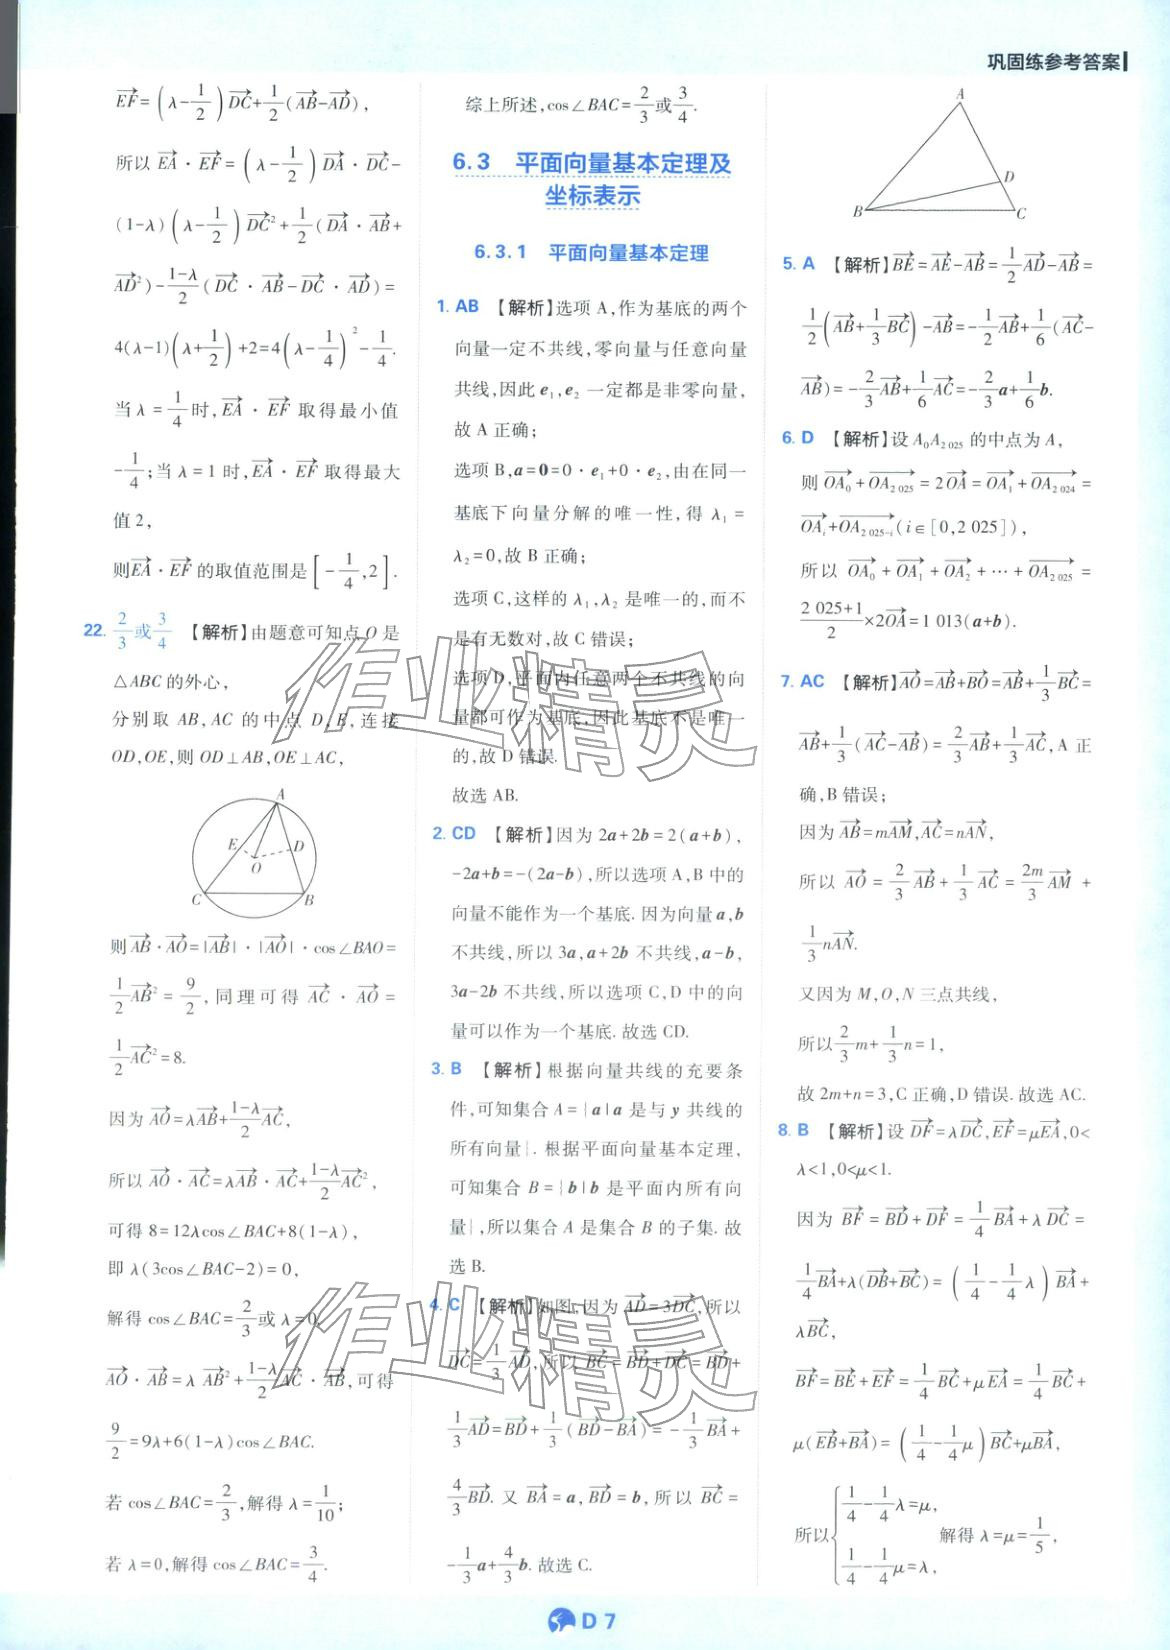 巩固练参考答案
$\overrightarrow{EF}=\left(\lambda-\frac{1}{2}\right)\overrightarrow{DC}+\frac{1}{2}(\overrightarrow{AB}-\overrightarrow{AD})$,
所以 $\overrightarrow{EA}\cdot\overrightarrow{EF}=\left(\lambda-\frac{1}{2}\right)\overrightarrow{DA}\cdot\overrightarrow{DC}-$
$(1-\lambda)\left(\lambda-\frac{1}{2}\right)\overrightarrow{DC}^2+\frac{1}{2}(\overrightarrow{DA}\cdot\overrightarrow{AB}+$
$\overrightarrow{AD}^2)-\frac{1-\lambda}{2}(\overrightarrow{DC}\cdot\overrightarrow{AB}-\overrightarrow{DC}\cdot\overrightarrow{AD})=$
$4(\lambda-1)\left(\lambda+\frac{1}{2}\right)+2=4\left(\lambda-\frac{1}{4}\right)^2-\frac{1}{4}$.
当 $\lambda=\frac{1}{4}$ 时,$\overrightarrow{EA}\cdot\overrightarrow{EF}$ 取得最小值
$-\frac{1}{4}$;当 $\lambda=1$ 时,$\overrightarrow{EA}\cdot\overrightarrow{EF}$ 取得最大
值 2,
则$\overrightarrow{EA}\cdot\overrightarrow{EF}$ 的取值范围是 $\left[-\frac{1}{4},2\right]$.
22. $\frac{2}{3}$或$\frac{3}{4}$ 【解析】由题意可知点 O 是
△ABC 的外心,
分别取 AB,AC 的中点 D,E,连接
OD,OE,则 OD⊥AB,OE⊥AC,
A
E
D
O
C
B
则$\overrightarrow{AB}\cdot\overrightarrow{AO}=|\overrightarrow{AB}|\cdot|\overrightarrow{AO}|\cdot\cos\angle BAO=$
$\frac{1}{2}\overrightarrow{AB}^2=\frac{9}{2}$,同理可得 $\overrightarrow{AC}\cdot\overrightarrow{AO}=$
$\frac{1}{2}\overrightarrow{AC}^2=8$.
因为 $\overrightarrow{AO}=\lambda\overrightarrow{AB}+\frac{1-\lambda}{2}\overrightarrow{AC}$,
所以 $\overrightarrow{AO}\cdot\overrightarrow{AC}=\lambda\overrightarrow{AB}\cdot\overrightarrow{AC}+\frac{1-\lambda}{2}\overrightarrow{AC}^2$,
可得 8=12λcos∠BAC+8(1-λ),
即 λ(3cos∠BAC-2)=0,
解得 cos∠BAC=$\frac{2}{3}$或 λ=0,
$\overrightarrow{AO}\cdot\overrightarrow{AB}=\lambda\overrightarrow{AB}^2+\frac{1-\lambda}{2}\overrightarrow{AC}\cdot\overrightarrow{AB}$,可得
$\frac{9}{2}$=9λ+6(1-λ)cos∠BAC.
若 cos∠BAC=$\frac{2}{3}$,解得 λ=$\frac{1}{10}$;
若 λ=0,解得 cos∠BAC=$\frac{3}{4}$.
综上所述,cos∠BAC=$\frac{2}{3}$或$\frac{3}{4}$.
6.3 平面向量基本定理及
坐标表示
6.3.1 平面向量基本定理
1. AB 【解析】选项 A,作为基底的两个
向量一定不共线,零向量与任意向量
共线,因此 $e_1,e_2$ 一定都是非零向量,
故 A 正确;
选项 B,$a=0=0\cdot e_1+0\cdot e_2$,由在同一
基底下向量分解的唯一性,得 $\lambda_1=$
$\lambda_2=0$,故 B 正确;
选项 C,这样的 $\lambda_1,\lambda_2$ 是唯一的,而不
是有无数对,故 C 错误;
选项 D,平面内任意两个不共线的向
量都可作为基底,因此基底不是唯一
的,故 D 错误.
故选 AB.
2. CD 【解析】因为 2a+2b=2(a+b),
-2a+b=-(2a-b),所以选项 A,B 中的
向量不能作为一个基底.因为向量 a,b
不共线,所以 3a,a+2b 不共线,a-b,
3a-2b 不共线,所以选项 C,D 中的向
量可以作为一个基底.故选 CD.
3. B 【解析】根据向量共线的充要条
件,可知集合 A={a|a 是与 y 共线的
所有向量}.根据平面向量基本定理,
可知集合 B={b|b 是平面内所有向
量},所以集合 A 是集合 B 的子集.故
选 B.
4. C 【解析】如图,因为 $\overrightarrow{AD}=3\overrightarrow{DC}$,所以
$\overrightarrow{DC}=\frac{1}{3}\overrightarrow{AD}$,所以 $\overrightarrow{BC}=\overrightarrow{BD}+\overrightarrow{DC}=\overrightarrow{BD}+$
$\frac{1}{3}\overrightarrow{AD}=\overrightarrow{BD}+\frac{1}{3}(\overrightarrow{BD}-\overrightarrow{BA})=-\frac{1}{3}\overrightarrow{BA}+$
$\frac{4}{3}\overrightarrow{BD}$.又 $\overrightarrow{BA}=a,\overrightarrow{BD}=b$,所以 $\overrightarrow{BC}=$
$-\frac{1}{3}a+\frac{4}{3}b$.故选 C.
A
D
B
C
5. A 【解析】$\overrightarrow{BE}=\overrightarrow{AE}-\overrightarrow{AB}=\frac{1}{2}\overrightarrow{AD}-\overrightarrow{AB}=$
$\frac{1}{2}\left(\overrightarrow{AB}+\frac{1}{3}\overrightarrow{BC}\right)-\overrightarrow{AB}=-\frac{1}{2}\overrightarrow{AB}+\frac{1}{6}(\overrightarrow{AC}-$
$\overrightarrow{AB})=-\frac{2}{3}\overrightarrow{AB}+\frac{1}{6}\overrightarrow{AC}=-\frac{2}{3}a+\frac{1}{6}b$.
6. D 【解析】设 $A_0A_{2025}$ 的中点为 A,
则 $\overrightarrow{OA_0}+\overrightarrow{OA_{2025}}=2\overrightarrow{OA}=\overrightarrow{OA_1}+\overrightarrow{OA_{2024}}=$
$\overrightarrow{OA_i}+\overrightarrow{OA_{2025-i}}(i\in[0,2025])$,
所以 $\overrightarrow{OA_0}+\overrightarrow{OA_1}+\overrightarrow{OA_2}+\cdots+\overrightarrow{OA_{2025}}=$
$\frac{2025+1}{2}\times2\overrightarrow{OA}=1013(a+b)$.
7. AC 【解析】$\overrightarrow{AO}=\overrightarrow{AB}+\overrightarrow{BO}=\overrightarrow{AB}+\frac{1}{3}\overrightarrow{BC}=$
$\overrightarrow{AB}+\frac{1}{3}(\overrightarrow{AC}-\overrightarrow{AB})=\frac{2}{3}\overrightarrow{AB}+\frac{1}{3}\overrightarrow{AC}$,A 正
确,B 错误;
因为 $\overrightarrow{AB}=m\overrightarrow{AM},\overrightarrow{AC}=n\overrightarrow{AN}$,
所以 $\overrightarrow{AO}=\frac{2}{3}\overrightarrow{AB}+\frac{1}{3}\overrightarrow{AC}=\frac{2m}{3}\overrightarrow{AM}+$
$\frac{1}{3}n\overrightarrow{AN}$.
又因为 M,O,N 三点共线,
所以$\frac{2}{3}m+\frac{1}{3}n=1$,
故 2m+n=3,C 正确,D 错误.故选 AC.
8. B 【解析】设 $\overrightarrow{DF}=\lambda\overrightarrow{DC},\overrightarrow{EF}=\mu\overrightarrow{EA}$,0<
λ<1,0<μ<1.
因为 $\overrightarrow{BF}=\overrightarrow{BD}+\overrightarrow{DF}=\frac{1}{4}\overrightarrow{BA}+\lambda\overrightarrow{DC}=$
$\frac{1}{4}\overrightarrow{BA}+\lambda(\overrightarrow{DB}+\overrightarrow{BC})=\left(\frac{1}{4}-\frac{1}{4}\lambda\right)\overrightarrow{BA}+$
$\lambda\overrightarrow{BC}$,
$\overrightarrow{BF}=\overrightarrow{BE}+\overrightarrow{EF}=\frac{1}{4}\overrightarrow{BC}+\mu\overrightarrow{EA}=\frac{1}{4}\overrightarrow{BC}+$
$\mu(\overrightarrow{EB}+\overrightarrow{BA})=\left(\frac{1}{4}-\frac{1}{4}\mu\right)\overrightarrow{BC}+\mu\overrightarrow{BA}$,
所以$\begin{cases}\frac{1}{4}-\frac{1}{4}\lambda=\mu,\\\frac{1}{4}-\frac{1}{4}\mu=\lambda,\end{cases}$ 解得 $\lambda=\mu=\frac{1}{5}$,
作业精灵
作业精灵
D 7